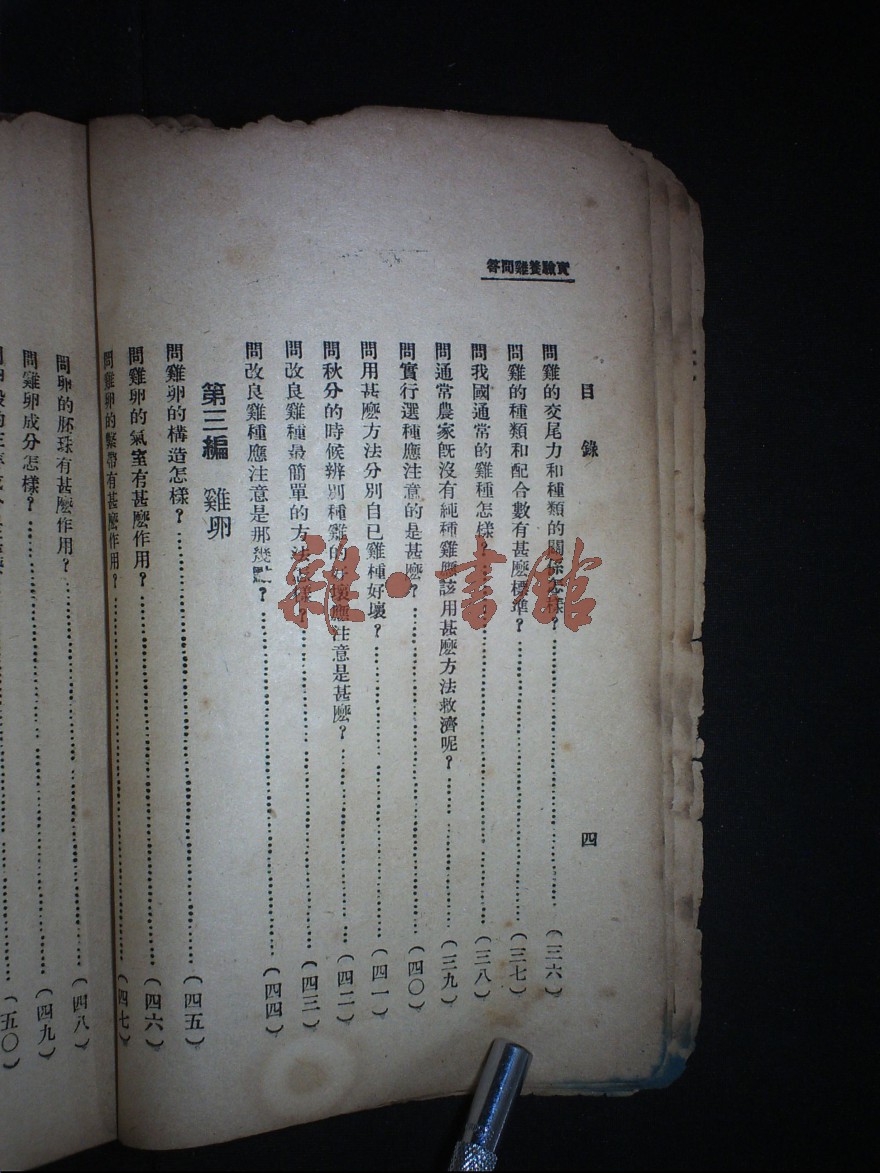 實驗養雞問答
目錄
四
問雞的交尾力和種類的關係怎樣？(三六)
問雞的種類和配合數有甚麽標準？(三七)
問我國通常的雞種怎樣？(三八)
問通常農家旣沒有純種雞應該用甚麽方法救濟呢？(三九)
問實行選種應注意的是甚麽？(四〇)
問用甚麽方法分別自己雞種好壞？(四一)
問秋分的時候辨別種雞的好壞應注意是甚麽？(四二)
問改良雞種最簡單的方法怎樣？(四三)
問改良雞種應注意是那幾點？(四四)
第三編 雞卵
問雞卵的構造怎樣？(四五)
問雞卵的氣室有甚麽作用？(四六)
問雞卵的繫帶有甚麽作用？(四七)
問卵的胚珠有甚麽作用？(四八)
問雞卵成分怎樣？(四九)
(五〇)
雜·書館